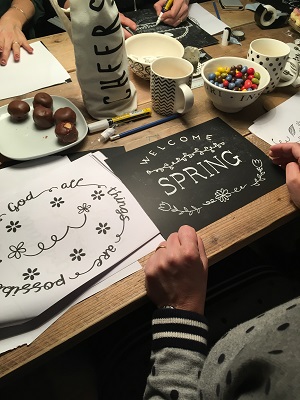 CHEERS
WELCOME
SPRING
God all
things
are
possible